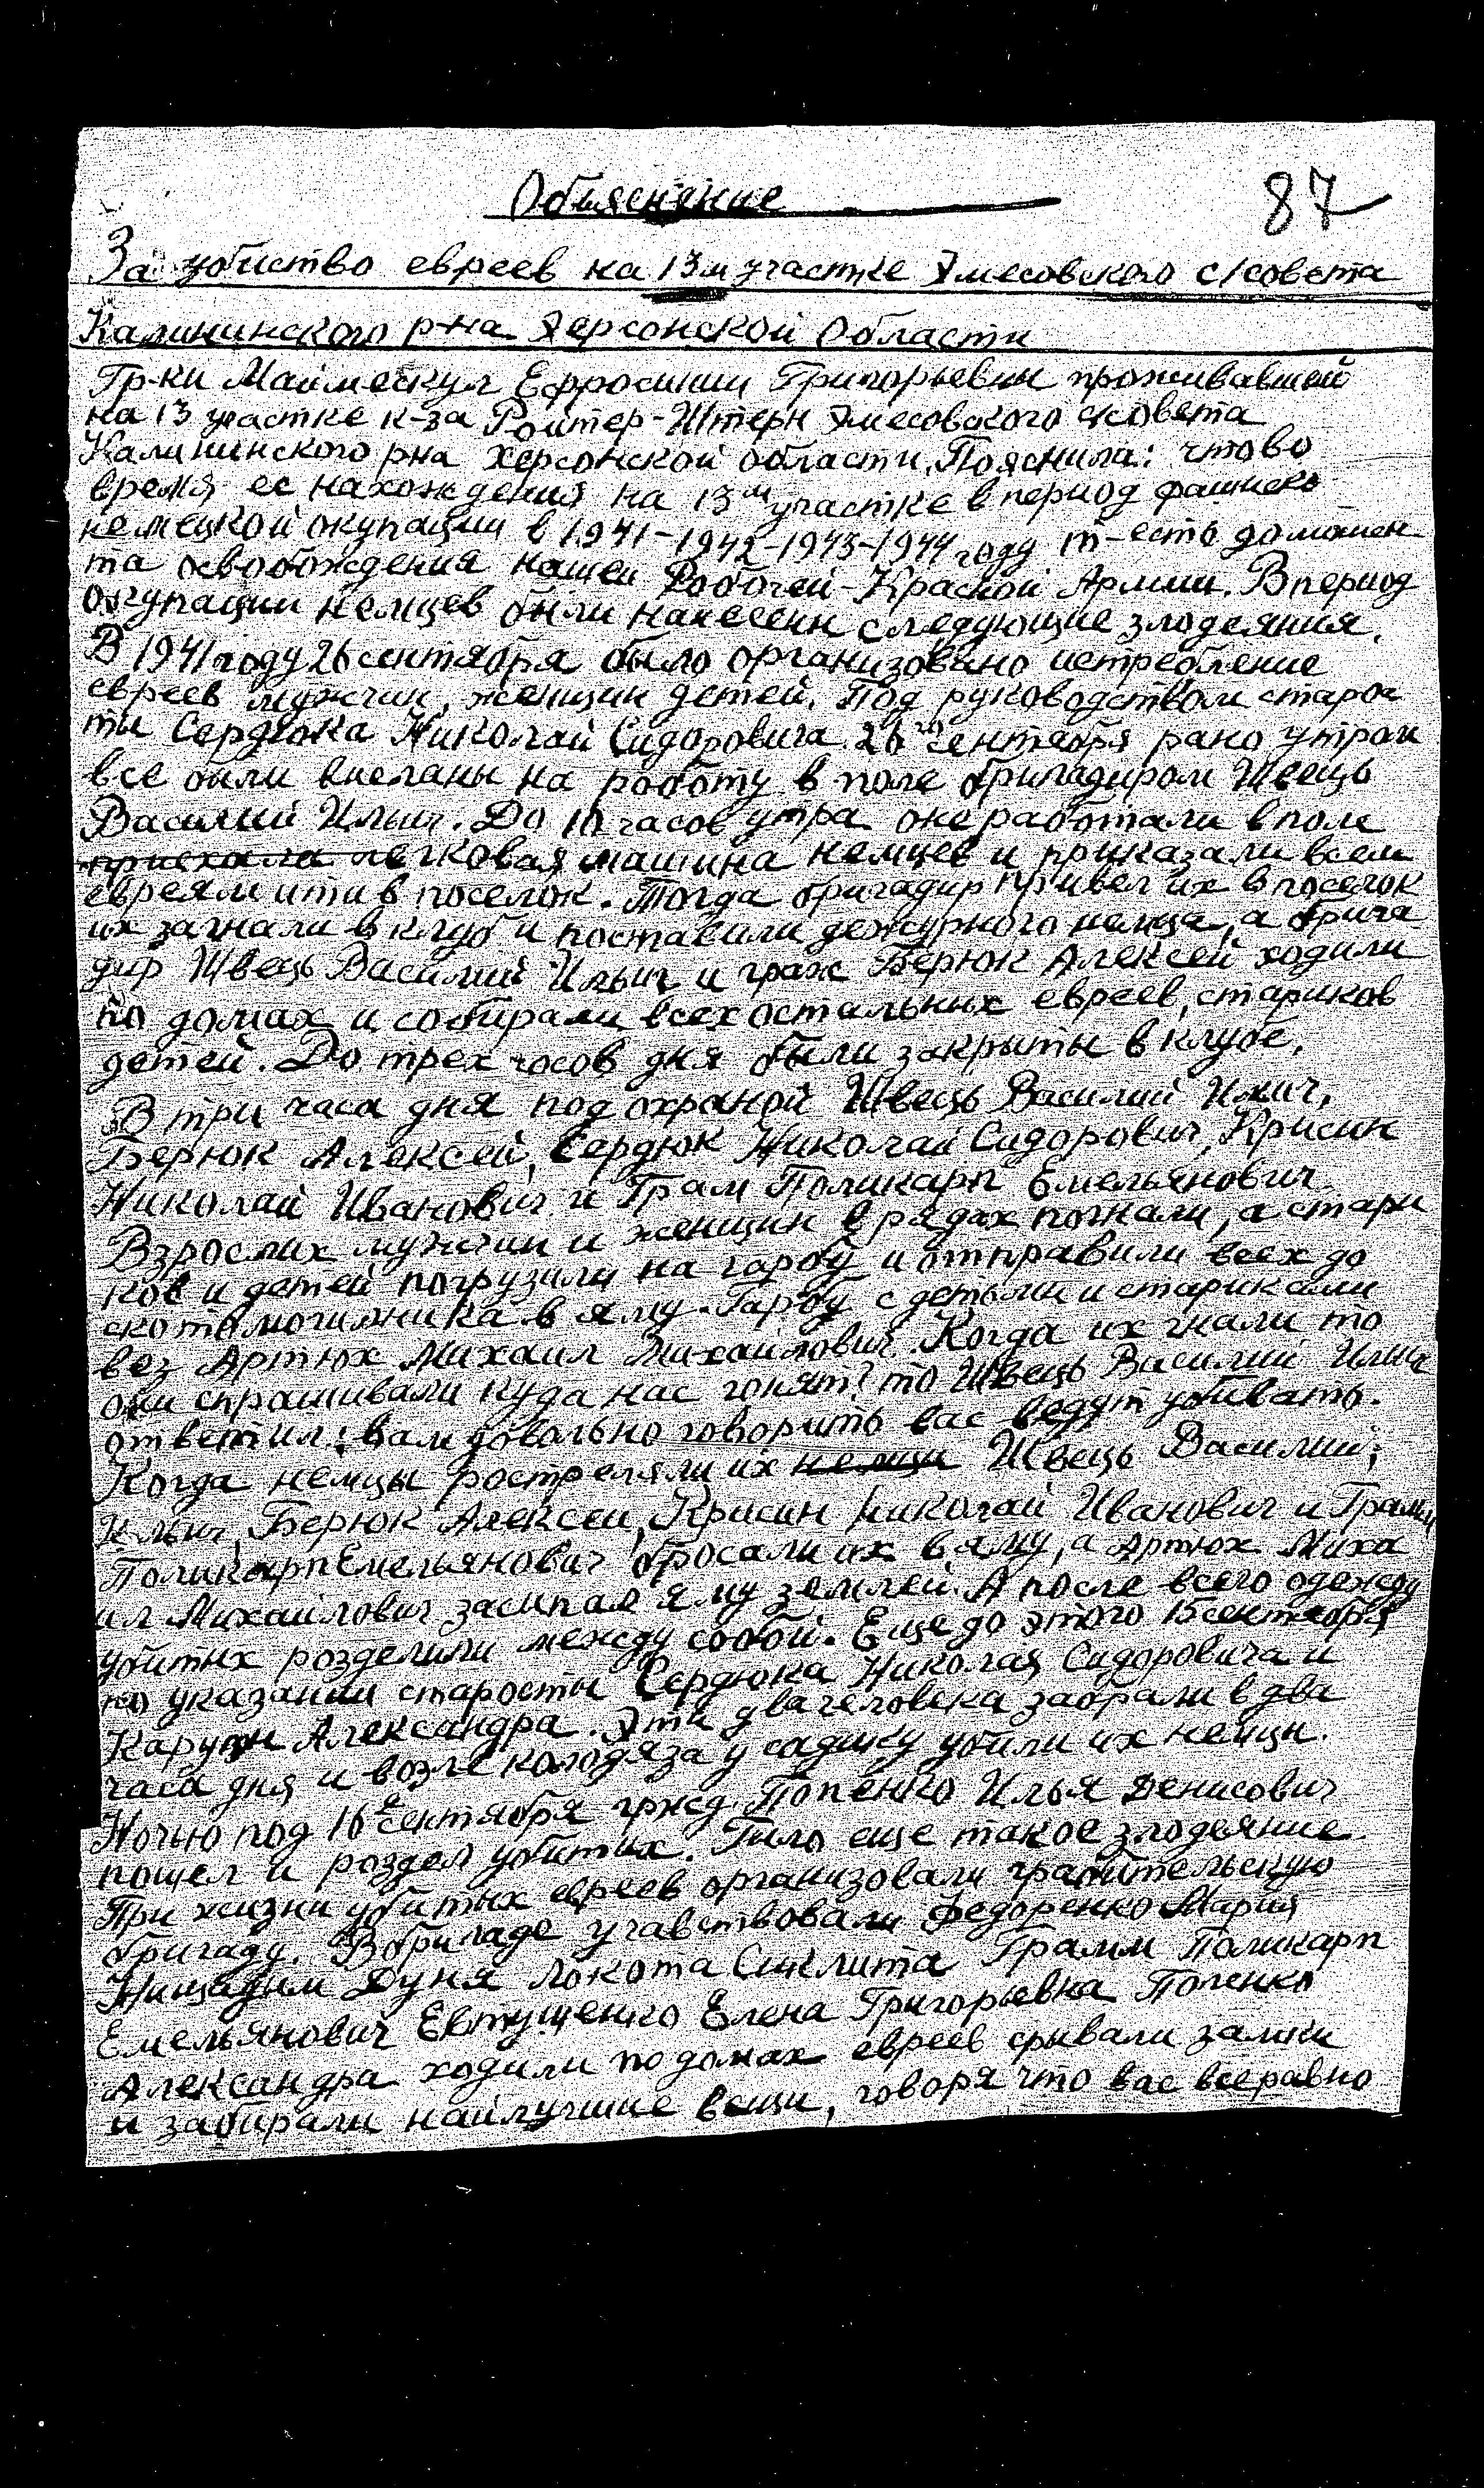 Обьяснение
87
За убиство евреев на 13м участке Эмесовского с/совета
Калининского р-на Херсонской Области
Гр-ки Маймескул Ефросинии Григорьевны проживавшей
на 13 участке к-за Ройтер-Штерн Эмесовского с/совета
Калининского рна Херсонской области, Пояснила: что во
время ее нахождения на 13м участке в период фашиско
немецкой окупации в 1941-1942-1943-1944 году т-есть до момен
та освобождения нашей Робочей-Красной Армии. В период
окупации немцев были нанесенн следующие злодеяния.
В 1941 году 26 сентября было организовано истребление
евреев мужчин, женщин детей. Под руководством старос
ты Сердюка Николай Сидоровича. 26го сентября рано утром
все были висланы на роботу в поле бригадиром Швець
Василий Ильич. До 10 часов утра они работали в поле
приехала легковая машина немцев и приказали всем
евреям ити в поселок. Тогда бригадир привел их в поселок
их загнали в клуб и поставили дежурного немца, а брига
дир Швець Василий Ильич и граж Берюк Алексей ходили
по домах и собирали всех остальных евреев, стариков
детей. До трех часов дня были закрыты в клубе.
В три часа дня под охраной Швець Василий Ильич,
Берюк Алексей, Сердюк Николай Сидорович, Крисин
Николай Иванович и Грам Поликарп Емельянович
Взрослих мужчин и женщин в рядах погнали, а стари
ков и детей погрузили на гарбу и отправили всех до
скотомогильника в яму. Гарбу с детьми и стариками
вез Артюх Михаил Михайлович. Когда их гнали то
они спрашивали куда нас гонят? то Швець Василий Ильич
ответил: вам довольно говорить вас ведут убивать.
Когда немцы ростреляли их немци Швець Василий;
Ильич, Берюк Алексей, Крисин Николай Иванович и Грамм
Поликарп Емельянович бросали их в яму, а Артюх Миха
ил Михайлович засипал яму землей. А после всего одежду
убитых розделили между собой. Еще до этого 15 сентября
по указании старосты Сердюка Николая Сидоровича и
Александра. Эти два человека забрали в два
часа дня и возле колодяза у садику убили их немцн.
Ночью под 16е сентября гржд. Попенко Илья Денисович
пошел и роздел убитых. Било еще такое злодеяние.
При жизни убитых евреев организовали грабительскую
бригаду. В бригаде учавствовали Федоренко Мария
Дуня Локота Сиклита Грамм Поликарп
Емельянович Евтущенко Елена Григорьевна Попенко
Александра ходили по домах евреев срывали замки
и забирали найлучшие вещи, говоря что вас всеравно